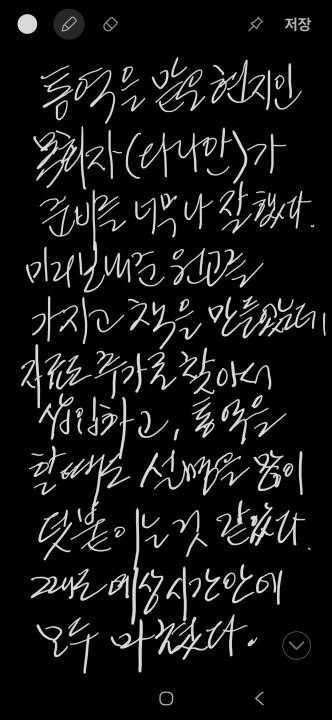 저장
통역을 맡은 현지인
목회자(다니만)가
준비를 너무나 잘했다.
미리보내준 원고를
가지고 책을 만들었는데
자료도 추가로 찾아서
삽입하고, 통역을
할때도 설명을 많이
덧붙이는것 같았다.
그래도 예상시간안에
모두 마쳤다.